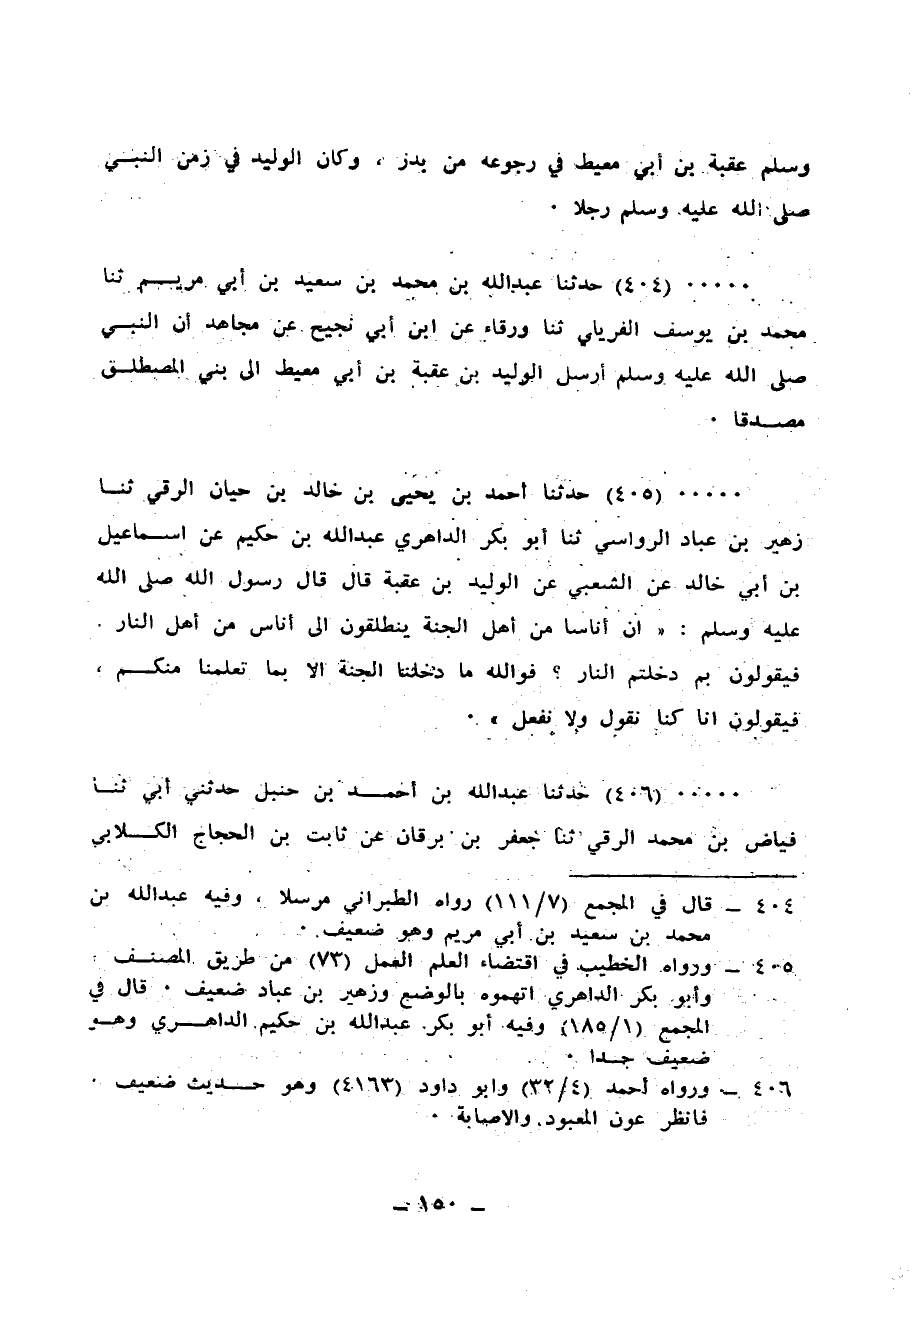 وسلم عقبة بن أبي معيط في رجوعه من بدر ، وكان الوليد في زمن النبـــي
صلى الله عليه وسلم رجلا ٠
٠٠٠٠٠ (٤٠٤) حدثنا عبدالله بن محمد بن سعيد بن أبي مريـــم ثنا
محمد بن يوسف الفريابي ثنا ورقاء عن ابن أبي نجيح عن مجاهد أن النبـــي
صلى الله عليه وسلم أرسل الوليد بن عقبة بن أبي معيط الى بني المصطلـــق
مصـــدقا ٠
٠٠٠٠٠ (٤٠٥) حدثنا أحمد بن يحيى بن خالد بن حيان الرقي ثنـــا
زهير بن عباد الرواسي ثنا أبو بكر الداهري عبدالله بن حكيم عن اســـماعيل
بن أبي خالد عن الشعبي عن الوليد بن عقبة قال قال رسول الله صلى الله
عليه وسلم : « ان أناسا من أهل الجنة ينطلقون الى أناس من أهل النار .
فيقولون بم دخلتم النار ؟ فوالله ما دخلنا الجنة الا بما تعلمنا منكـــم ،
فيقولون انا كنا نقول ولا نفعل » ٠
٠٠٠٠٠ (٤٠٦) حدثنا عبدالله بن أحمـــد بن حنبل حدثني أبي ثنـــا
فياض بن محمد الرقي ثنا جعفر بن برقان عن ثابت بن الحجاج الكـــلابي
٤٠٤ ــ قال في المجمع (١١١/٧) رواه الطبراني مرسلا ، وفيه عبدالله بن
محمد بن سعيد بن أبي مريم وهو ضعيف ٠
٤٠٥ ــ ورواه الخطيب في اقتضاء العلم العمل (٧٣) من طريق المصنـــف .
وأبو بكر الداهري اتهموه بالوضع وزهير بن عباد ضعيف ٠ قال في
المجمع (١٨٥/١) وفيه أبو بكر عبدالله بن حكيم الداهـــري وهـــو
ضعيف جـــدا ٠
٤٠٦ ــ ورواه أحمد (٣٢/٤) وابو داود (٤١٦٣) وهو حـــديث ضعيف ٠
فانظر عون المعبود والاصابة ٠
ــ ١٥٠ ــ